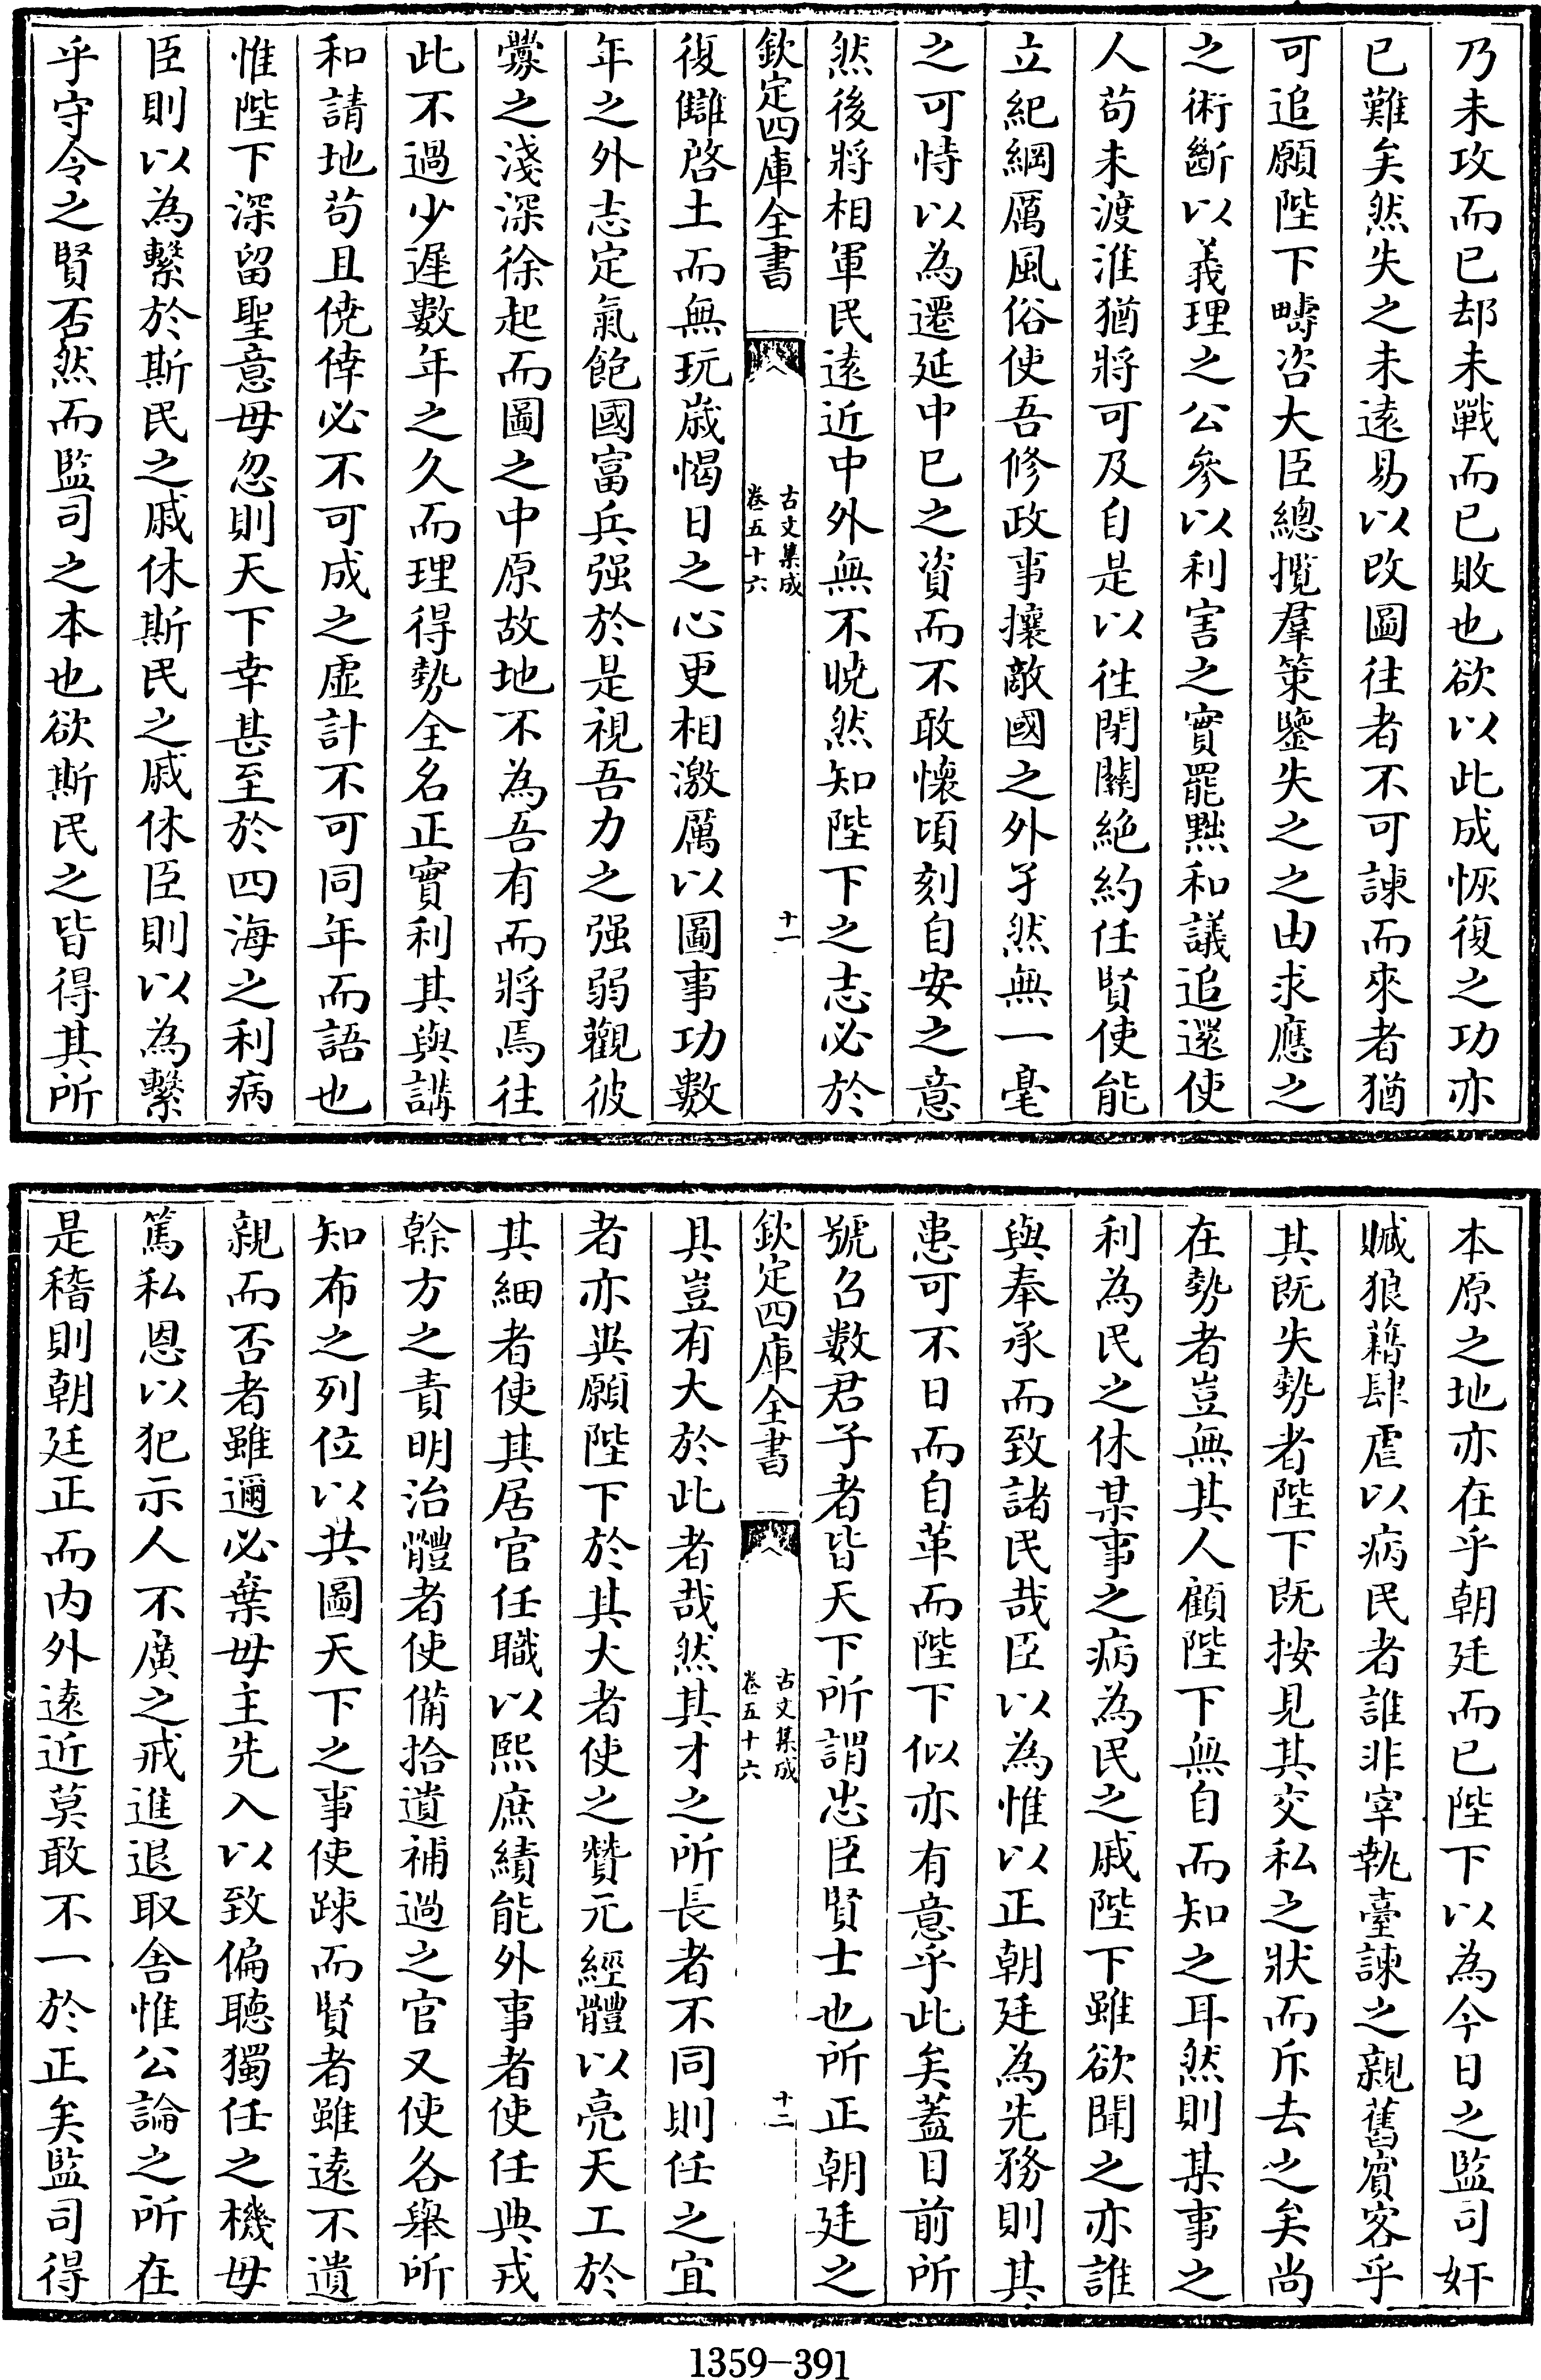 乃未攻而已却未戰而已敗也欲以此成恢復之功亦
已難矣然失之未逺易以改圖往者不可諫而來者猶
可追願陛下疇咨大臣總攬羣策鑒失之之由求應之
之術斷以義理之公參以利害之實罷黜和議追還使
人苟未渡淮猶將可及自是以徃閉關絶約任賢使能
立紀綱厲風俗使吾修政事攘敵國之外孑然無一毫
之可恃以為遷延中已之資而不敢懷頃刻自安之意
然後將相軍民逺近中外無不曉然知陛下之志必於
欽定四庫全書
古文集成
卷五十六
十一
復讎啓土而無玩嵗愒日之心更相激厲以圖事功數
年之外志定氣飽國富兵强於是視吾力之强弱觀彼
釁之淺深徐起而圖之中原故地不為吾有而將焉往
此不過少遲數年之久而理得勢全名正實利其與講
和請地苟且僥倖必不可成之虛計不可同年而語也
惟陛下深留聖意毋忽則天下幸甚至於四海之利病
臣則以為繫於斯民之戚休斯民之戚休臣則以為繫
乎守令之賢否然而監司之本也欲斯民之皆得其所
本原之地亦在乎朝廷而已陛下以為今日之監司奸
贓狼藉肆虐以病民者誰非宰執臺諫之親舊賓客乎
其既失勢者陛下既按見其交私之狀而斥去之矣尚
在勢者豈無其人顧陛下無自而知之耳然則某事之
利為民之休某事之病為民之戚陛下雖欲聞之亦誰
與奉承而致諸民哉臣以為惟以正朝廷為先務則其
患可不日而自革而陛下似亦有意乎此矣蓋日前所
號召數君子者皆天下所謂忠臣賢士也所正朝廷之
欽定四庫全書
古文集成
卷五十六
十二
具豈有大於此者哉然其才之所長者不同則任之宜
者亦異願陛下於其大者使之贊元經體以亮天工於
其細者使其居官任職以熙庶績能外事者使任典戎
幹方之責明治體者使備拾遺補過之官又使各舉所
知布之列位以共圖天下之事使踈而賢者雖逺不遺
親而否者雖邇必棄毋主先入以致偏聽獨任之機毋
篤私恩以犯示人不廣之戒進退取舍惟公論之所在
是稽則朝廷正而内外逺近莫敢不一於正矣監司得
1359-391